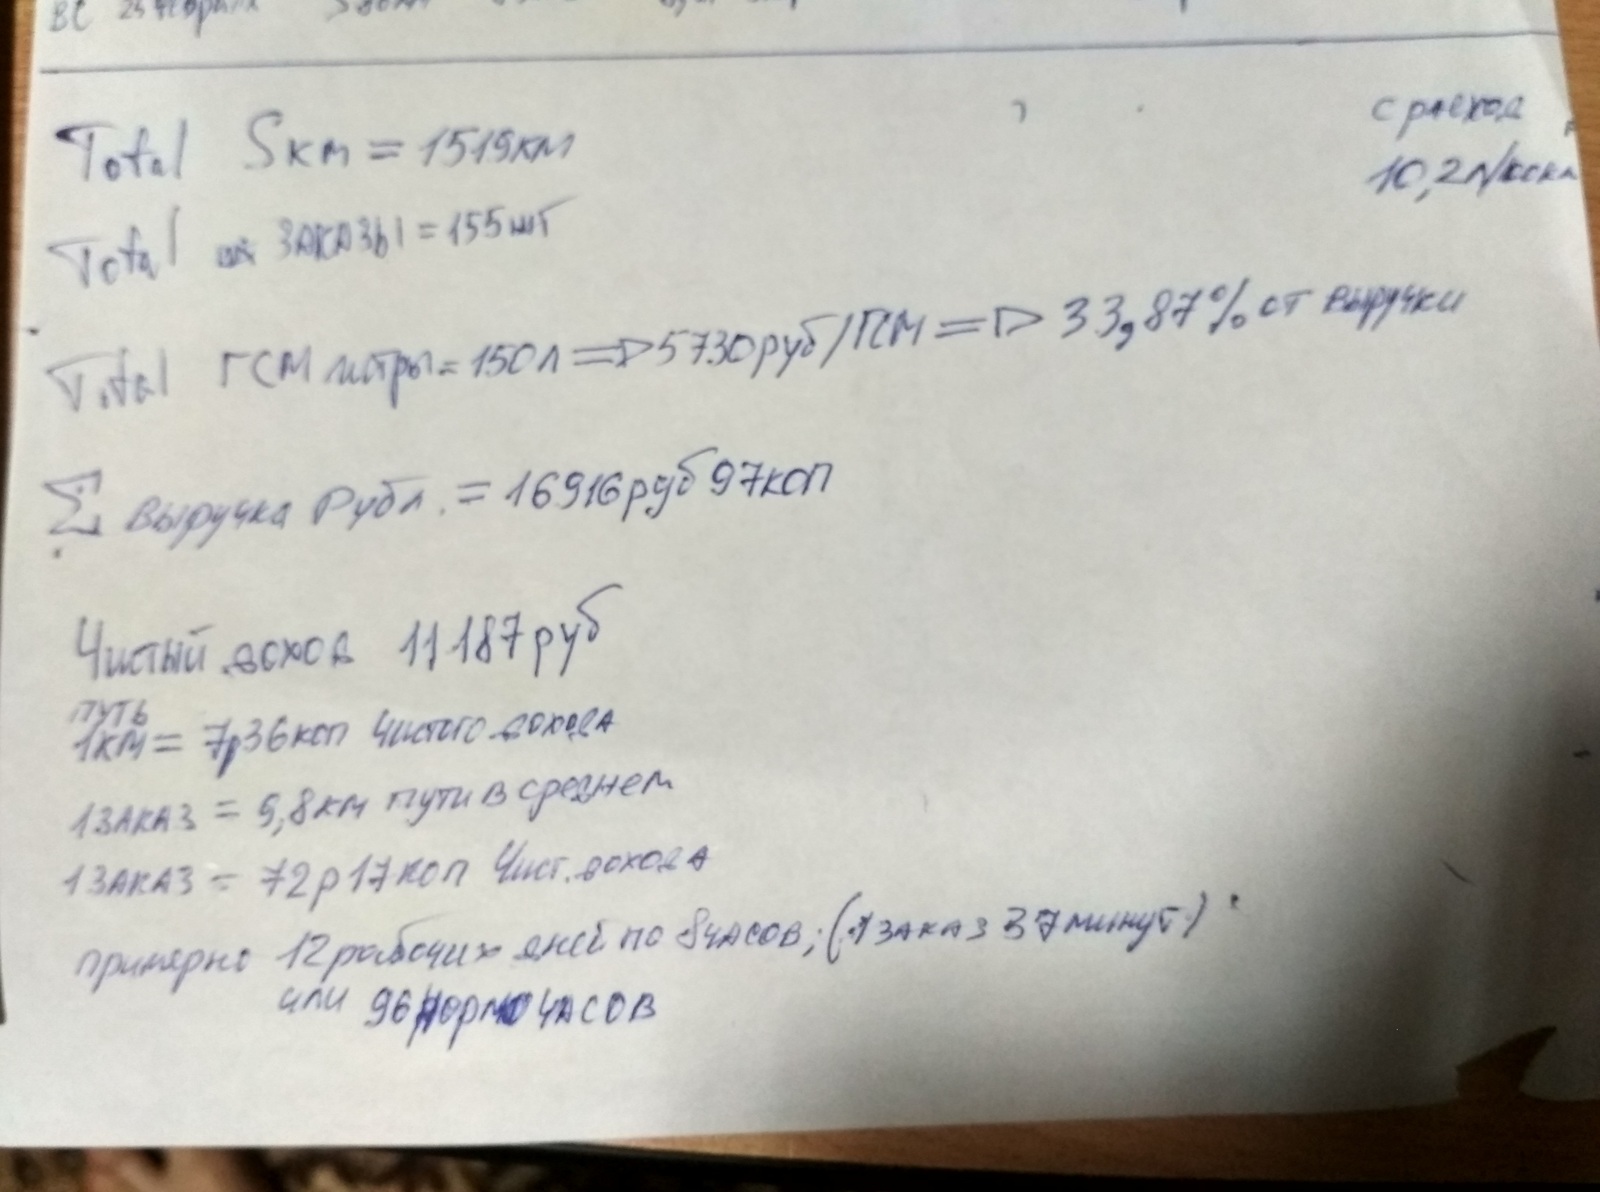 ВС 25 февраля
с расход
Total Sкм = 1519км
10,2л/100км
Total заказы = 155шт
Total ГСМ литры = 150л => 5730руб/ГСМ => 33,87% от выручки
Σ выручка Рубл. = 16916руб 97коп
Чистый доход 11187руб
путь
1км = 7р36коп Чистого дохода
1заказ = 9,8км пути в среднем
1заказ = 72р17коп Чист. дохода
примерно 12 рабочих дней по 8часов; (1 заказ 37минут)
или 96 нормочасов